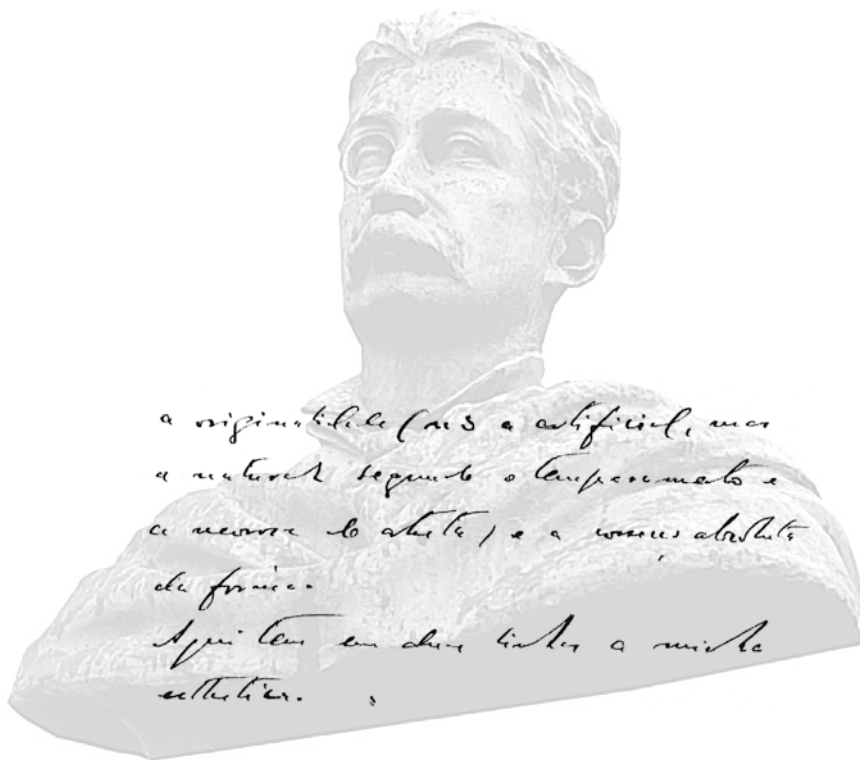 a originalidade (não a artificial, mas
a natural segundo o temperamento e
a nevrose do                ) e a            absoluta
da forma.
Aqui tem em duas linhas a minha
esthetica.